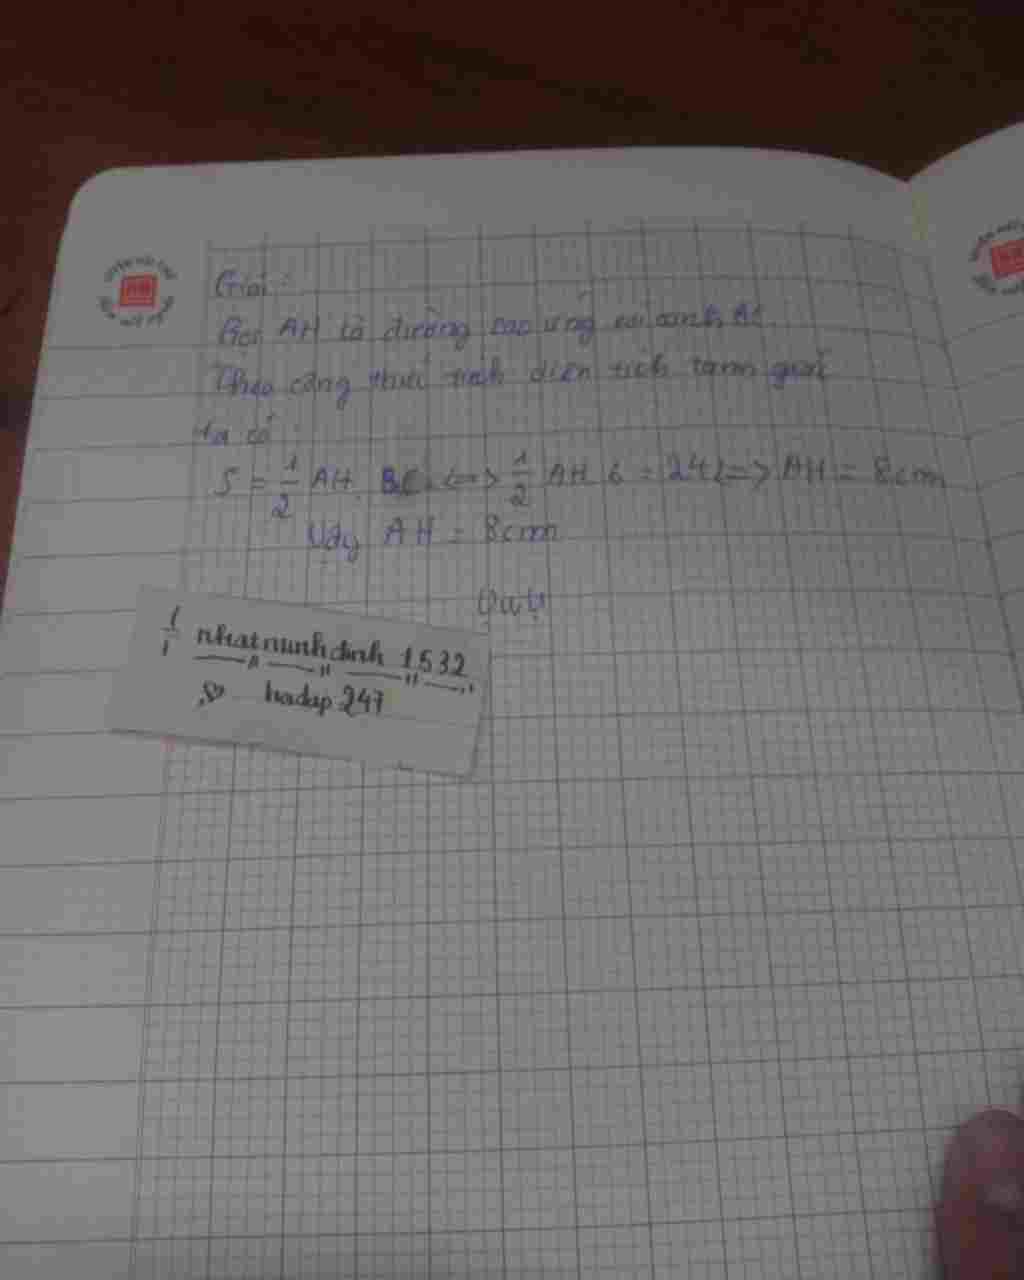 Giải:
Gọi AH là đường cao ứng với cạnh BC
Theo công thức tính diện tích tam giác
ta có
S = 1/2 AH. BC <=> 1/2 AH 6 = 24 <=> AH = 8cm
Vậy AH = 8cm
nhatminhdinh 1532
hadap 247